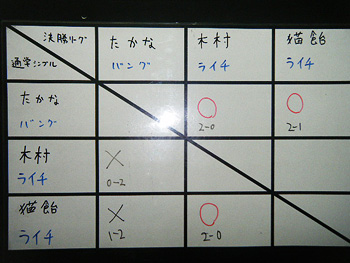 決勝リーグ
通常シングル
たかな
バング
木村
ライチ
猫飴
ライチ
たかな
バング
○
2-0
○
2-1
木村
ライチ
×
0-2
猫飴
ライチ
×
1-2
○
2-0